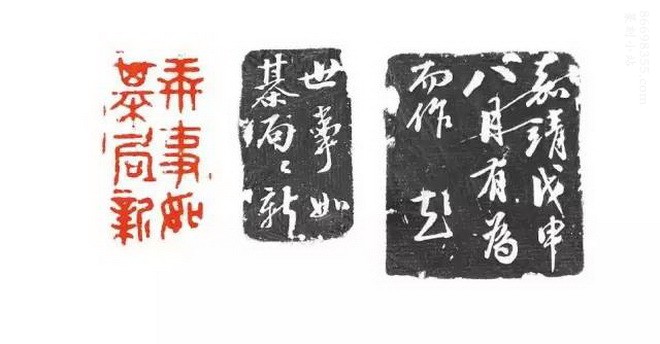 世事如
棊局新
世事如
棊局〻新
嘉靖戊申
八月有為
而作